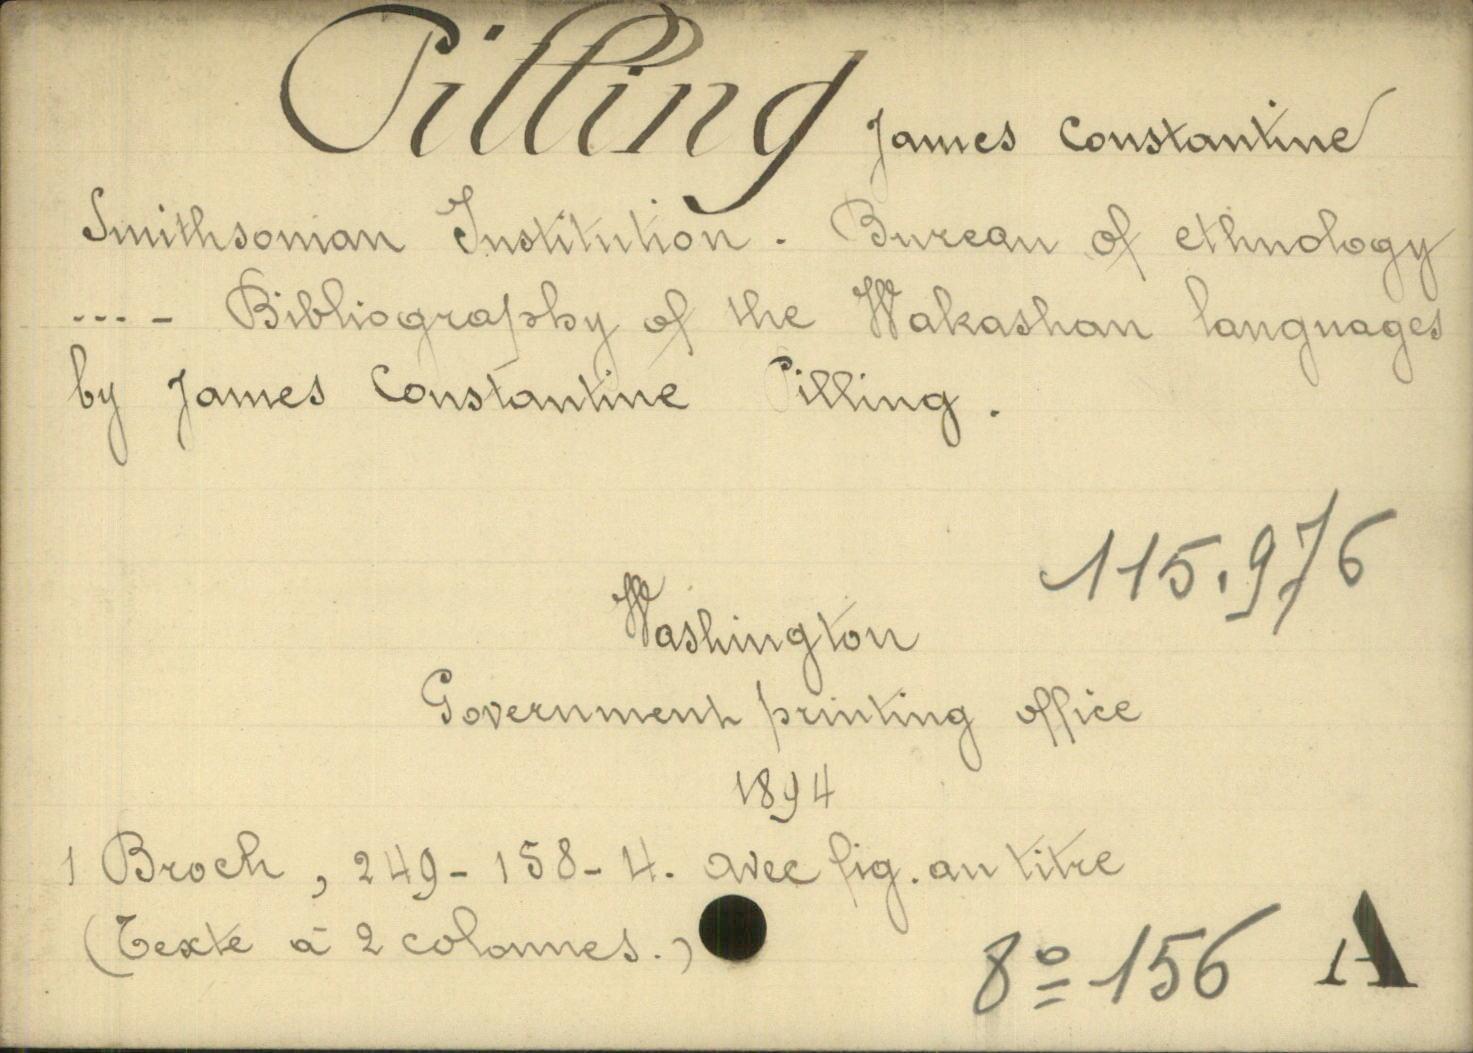 Pilling James Constantine
Smithsonian Institution. Bureau of ethnology
... - Bibliography of the Wakashan languages
by James Constantine Pilling.
115.976
Washington
Government printing office
1894
1 Broch, 249-158-4. avec fig. au titre
(Texte à 2 colonnes.)
8º 156 A